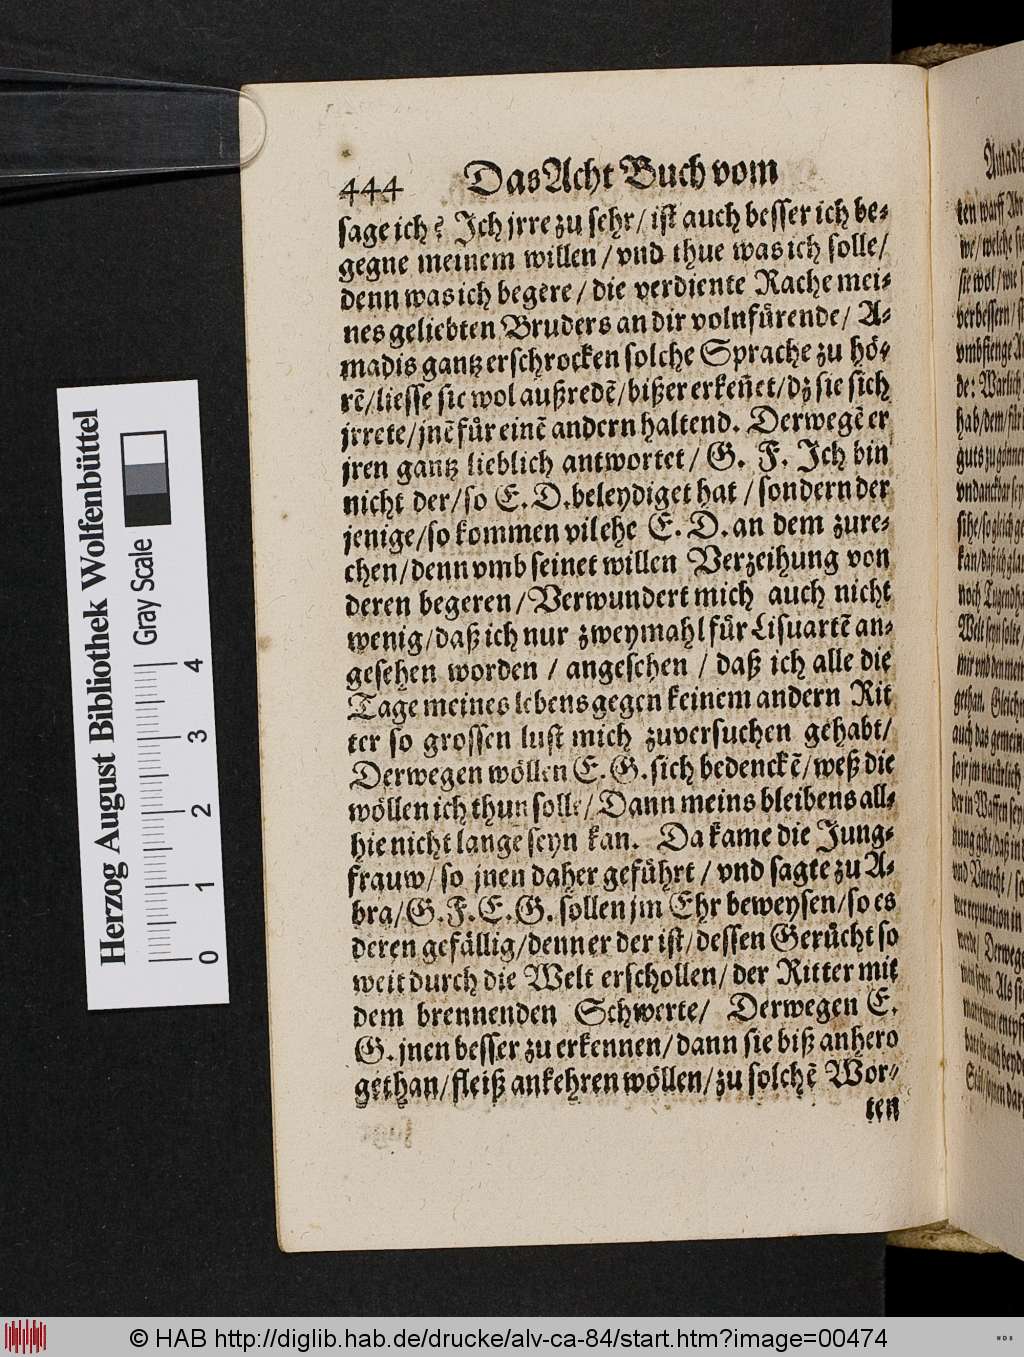 444 Das Acht Buch vom
sage ich? Ich jrre zu sehr/ ist auch besser ich be-
gegne meinem willen/ vnd thue was ich solle/
denn was ich begere/ die verdiente Rache mei-
nes geliebten Bruders an dir volnfürende/ A-
madis gantz erschrocken solche Sprache zu hö-
rẽ/ liesse sie wol außredẽ/ bißer erkeñet/ dz sie sich
jrrete/ jnẽ für einẽ andern haltend. Derwegẽ er
jren gantz lieblich antwortet/ G. F. Ich bin
nicht der/ so E. D. beleydiget hat/ sondern der
jenige/ so kommen vilehe E. D. an dem zure-
chen/ denn vmb seinet willen Verzeihung von
deren begeren/ Verwundert mich auch nicht
wenig/ daß ich nur zweymahl für Lisuartẽ an-
gesehen worden/ angesehen/ daß ich alle die
Tage meines lebens gegen keinem andern Rit
ter so grossen lust mich zuversuchen gehabt/
Derwegen wöllen E. G. sich bedenckẽ/ weß die
wöllen ich thun solle/ Dann meins bleibens all-
hie nicht lange seyn kan. Da kame die Jung-
frauw/ so jnen daher geführt/ vnd sagte zu A-
bra/ G. F. E. G. sollen jm Ehr beweysen/ so es
deren gefällig/ denn er der ist/ dessen Gerücht so
weit durch die Welt erschollen/ der Ritter mit
dem brennenden Schwerte/ Derwegen E.
G. jnen besser zu erkennen/ dann sie biß anhero
gethan/ fleiß ankehren wöllen/ zu solchẽ Wor-
ten
Herzog August Bibliothek Wolfenbüttel
Gray Scale
0 1 2 3 4
Amadis
verbessern/
vmbfienge
de: Warlich
hab/ dem/ für
guts zu gönnen
noch Tugendha
Welt seyn solte
mir vnd den mein
gethan. Gleich
auch das gemein
der in Waffen sey
vnd Vnrecht/
wer reputation in
werde/ Derwege
© HAB http://diglib.hab.de/drucke/alv-ca-84/start.htm?image=00474